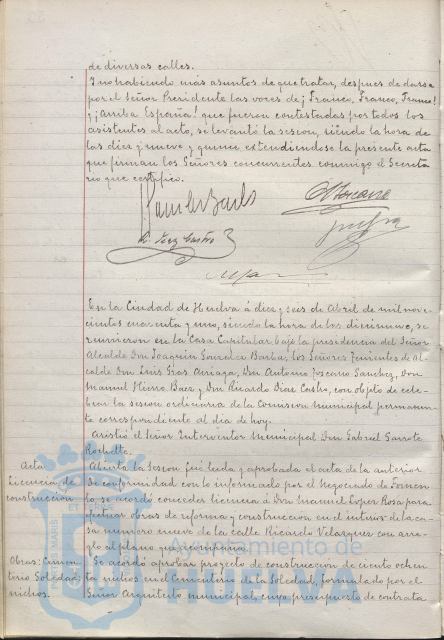 de diversas calles.
Y no habiendo más asuntos de que tratar, despues de darse
por el Señor Presidente las voces de ¡Franco, Franco, Franco!
y ¡Arriba España! que fueron contestadas por todos los
asistentes al acto, se levantó la sesion, siendo la hora de
las diez y nueve y quince extendiendose la presente acta
que firman los Señores concurrentes conmigo el Secreta
rio que certifico.
En la Ciudad de Huelva á diez y seis de Abril de mil nove
cientos cuarenta y uno, siendo la hora de las diecinueve, se
reunieron en la Casa Capitular bajo la presidencia del Señor
Alcalde Don Joaquin Gonzalez Barba, los Señores Tenientes de Al
calde Don Luis Arriaza, Don Antonio Toscano Sanchez, Don
Manuel Hierro Baez y Don Ricardo Diaz Castro, con objeto de cele
brar la sesion ordinaria de la Comision municipal permanen
te correspondiente al dia de hoy.
Asistió el Señor Interventor Municipal Don Gabriel
Acta
Abierta la sesion fué leida y aprobada el acta de la anterior.
Licencia de
De conformidad con lo informado por el Negociado de Fomen
construccion
to, se acordó conceder licencia á Don Manuel Lopez Rosa para
efectuar obras de reforma y construccion en el interior de la ca
sa numero nueve de la calle Ricardo Velazquez con arre
glo al plano que acompaña.
Ayuntamiento de
Obras: Cemen
Se acordó aprobar proyecto de construccion de ciento ochen
terio Soledad;
ta nichos en el Cementerio de la Soledad, formulado por el
nichos.
Señor Arquitecto municipal cuyo presupuesto de contrata